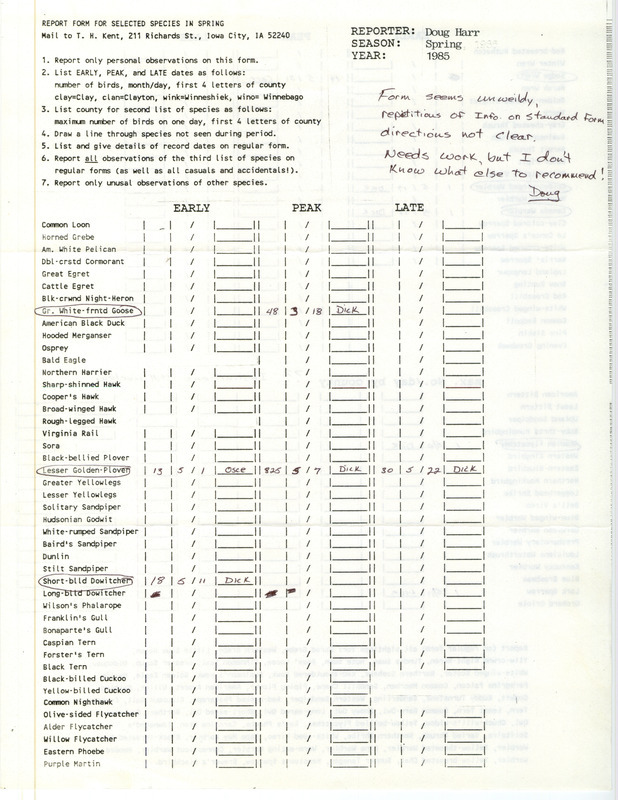 REPORT FORM FOR SELECTED SPECIES IN SPRING
Mail to T. H. Kent, 211 Richards St., Iowa City, IA 52240
REPORTER: Doug Harr
SEASON: Spring
YEAR: 1985
1. Report only personal observations on this form.
2. List EARLY, PEAK, and LATE dates as follows:
number of birds, month/day, first 4 letters of county
clay=Clay, clan=Clayton, wink=Winneshiek, wino= Winnebago
3. List county for second list of species as follows:
maximum number of birds on one day, first 4 letters of county
4. Draw a line through species not seen during period.
5. List and give details of record dates on regular form.
6. Report all observations of the third list of species on
regular forms (as well as all casuals and accidentals!).
7. Report only unusual observations of other species.
Form seems unweildy,
repetitions of Info. on standard form
directions not clear.
Needs work, but I don't
know what else to recommend!
Doug
EARLY PEAK LATE
Common Loon
Horned Grebe
Am. White Pelican
Dbl-crstd Cormorant
Great Egret
Cattle Egret
Blk-crwnd Night-Heron
Gr. White-frntd Goose 48 3/18 Dick
American Black Duck
Hooded Merganser
Osprey
Bald Eagle
Northern Harrier
Sharp-shinned Hawk
Cooper's Hawk
Broad-winged Hawk
Rough-legged Hawk
Virginia Rail
Sora
Black-bellied Plover
Lesser Golden-Plover 13 5/1 Osce 825 5/7 Dick 30 5/22 Dick
Greater Yellowlegs
Lesser Yellowlegs
Solitary Sandpiper
Hudsonian Godwit
White-rumped Sandpiper
Baird's Sandpiper
Dunlin
Stilt Sandpiper
Short-blld Dowitcher 18 5/11 Dick
Long-blld Dowitcher
Wilson's Phalarope
Franklin's Gull
Bonaparte's Gull
Caspian Tern
Forster's Tern
Black Tern
Black-billed Cuckoo
Yellow-billed Cuckoo
Common Nighthawk
Olive-sided Flycatcher
Alder Flycatcher
Willow Flycatcher
Eastern Phoebe
Purple Martin